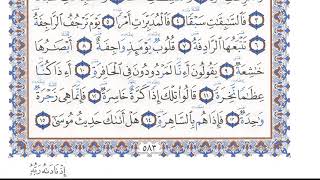 ٣ فَالسَّٰبِقَٰتِ سَبْقًا ٤ فَالْمُدَبِّرَٰتِ أَمْرًا ٥ يَوْمَ تَرْجُفُ الرَّاجِفَةُ
٦ تَتْبَعُهَا الرَّادِفَةُ ٧ قُلُوبٌ يَوْمَئِذٍ وَاجِفَةٌ ٨ أَبْصَٰرُهَا
خَٰشِعَةٌ ٩ يَقُولُونَ أَءِنَّا لَمَرْدُودُونَ فِي الْحَافِرَةِ ١٠ أَءِذَا كُنَّا
عِظَٰمًا نَّخِرَةً ١١ قَالُوا تِلْكَ إِذًا كَرَّةٌ خَاسِرَةٌ ١٢ فَإِنَّمَا هِيَ زَجْرَةٌ
وَٰحِدَةٌ ١٣ فَإِذَا هُم بِالسَّاهِرَةِ ١٤ هَلْ أَتَىٰكَ حَدِيثُ مُوسَىٰ ١٥
٥٨٣
إِذْ نَادَىٰهُ رَبُّهُ